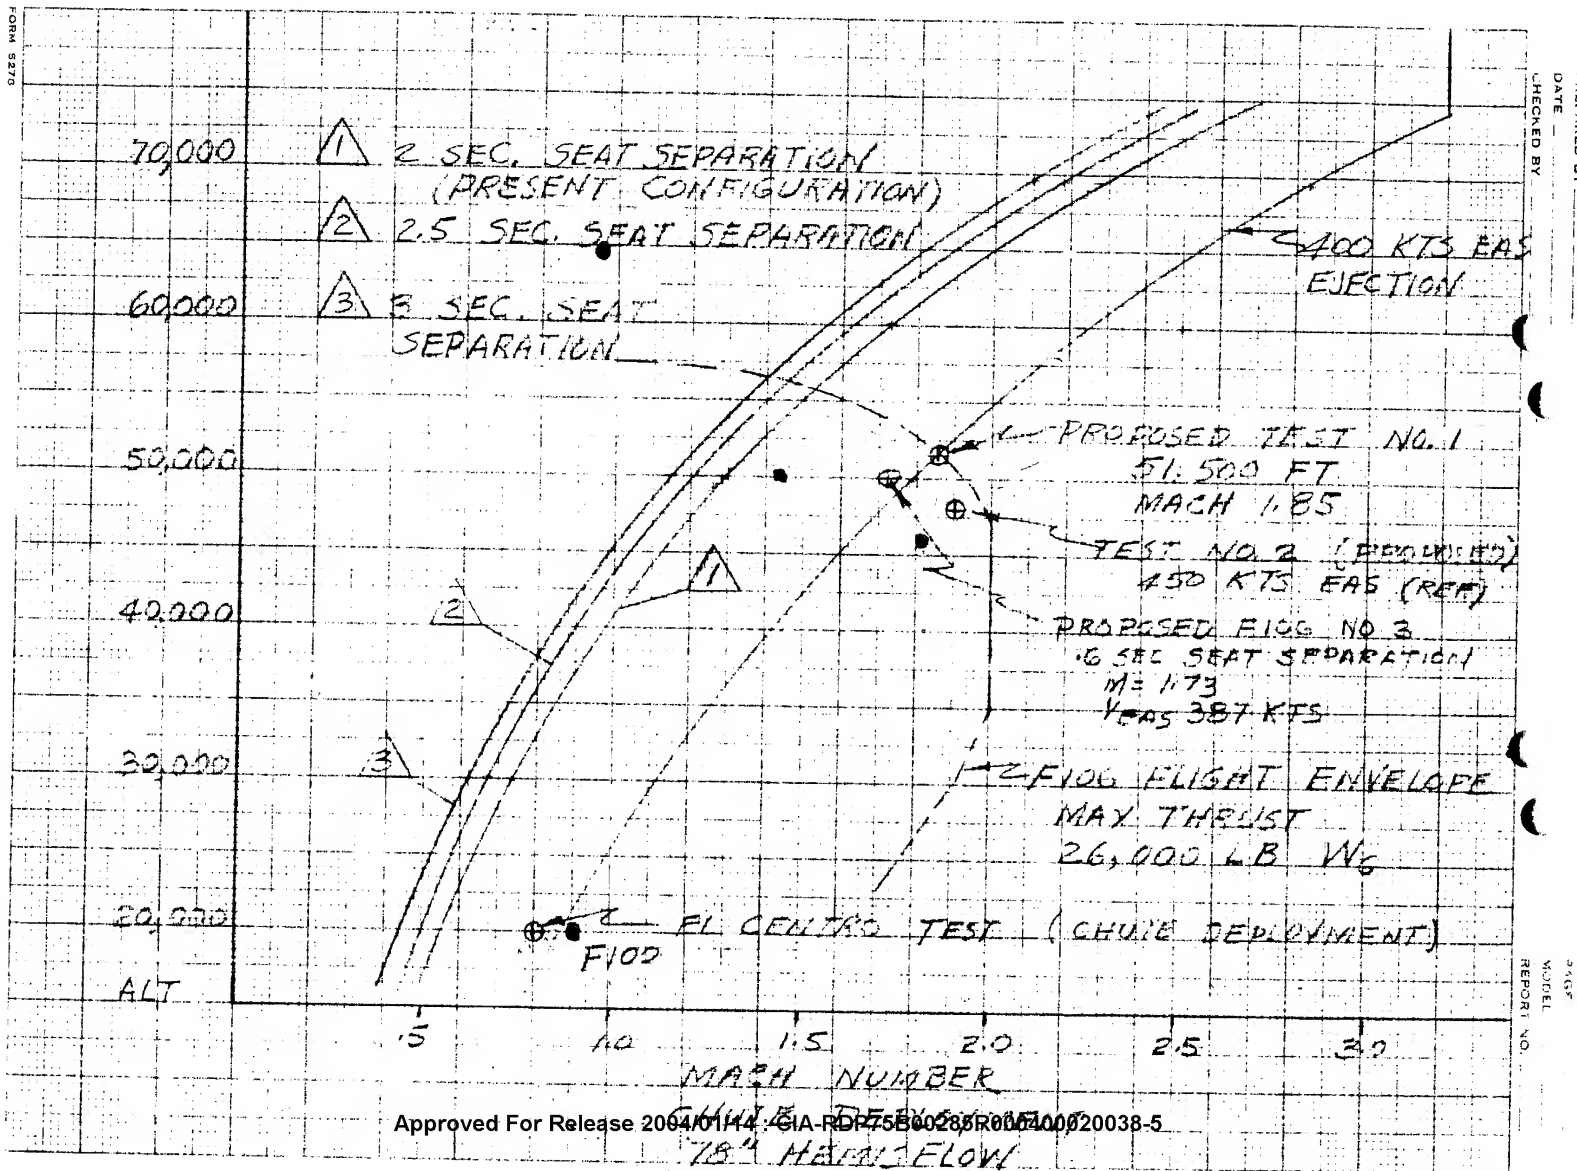 FORM 5278
DATE
CHECKED BY
70,000
60,000
50,000
40,000
30,000
20,000
ALT
1 2 SEC. SEAT SEPARATION
(PRESENT CONFIGURATION)
2 2.5 SEC. SEAT SEPARATION
3 3 SEC. SEAT
SEPARATION
400 KTS EAS
EJECTION
PROPOSED TEST NO. 1
51,500 FT
MACH 1.85
TEST NO. 2 (PROPOSED)
450 KTS EAS (REF)
PROPOSED F106 NO 3
.6 SEC SEAT SEPARATION
M= 1.73
VEAS 387 KTS
1
2
3
F106 FLIGHT ENVELOPE
MAX THRUST
26,000 LB WG
EL CENTRO TEST (CHUTE DEPLOYMENT)
F100
.5
1.0
1.5
2.0
2.5
3.0
MACH NUMBER
CHUTE
78" HEMISFLOW
Approved For Release 2004/01/14 : CIA-RDP75B00285R000400020038-5
PAGE
MODEL
REPORT NO.